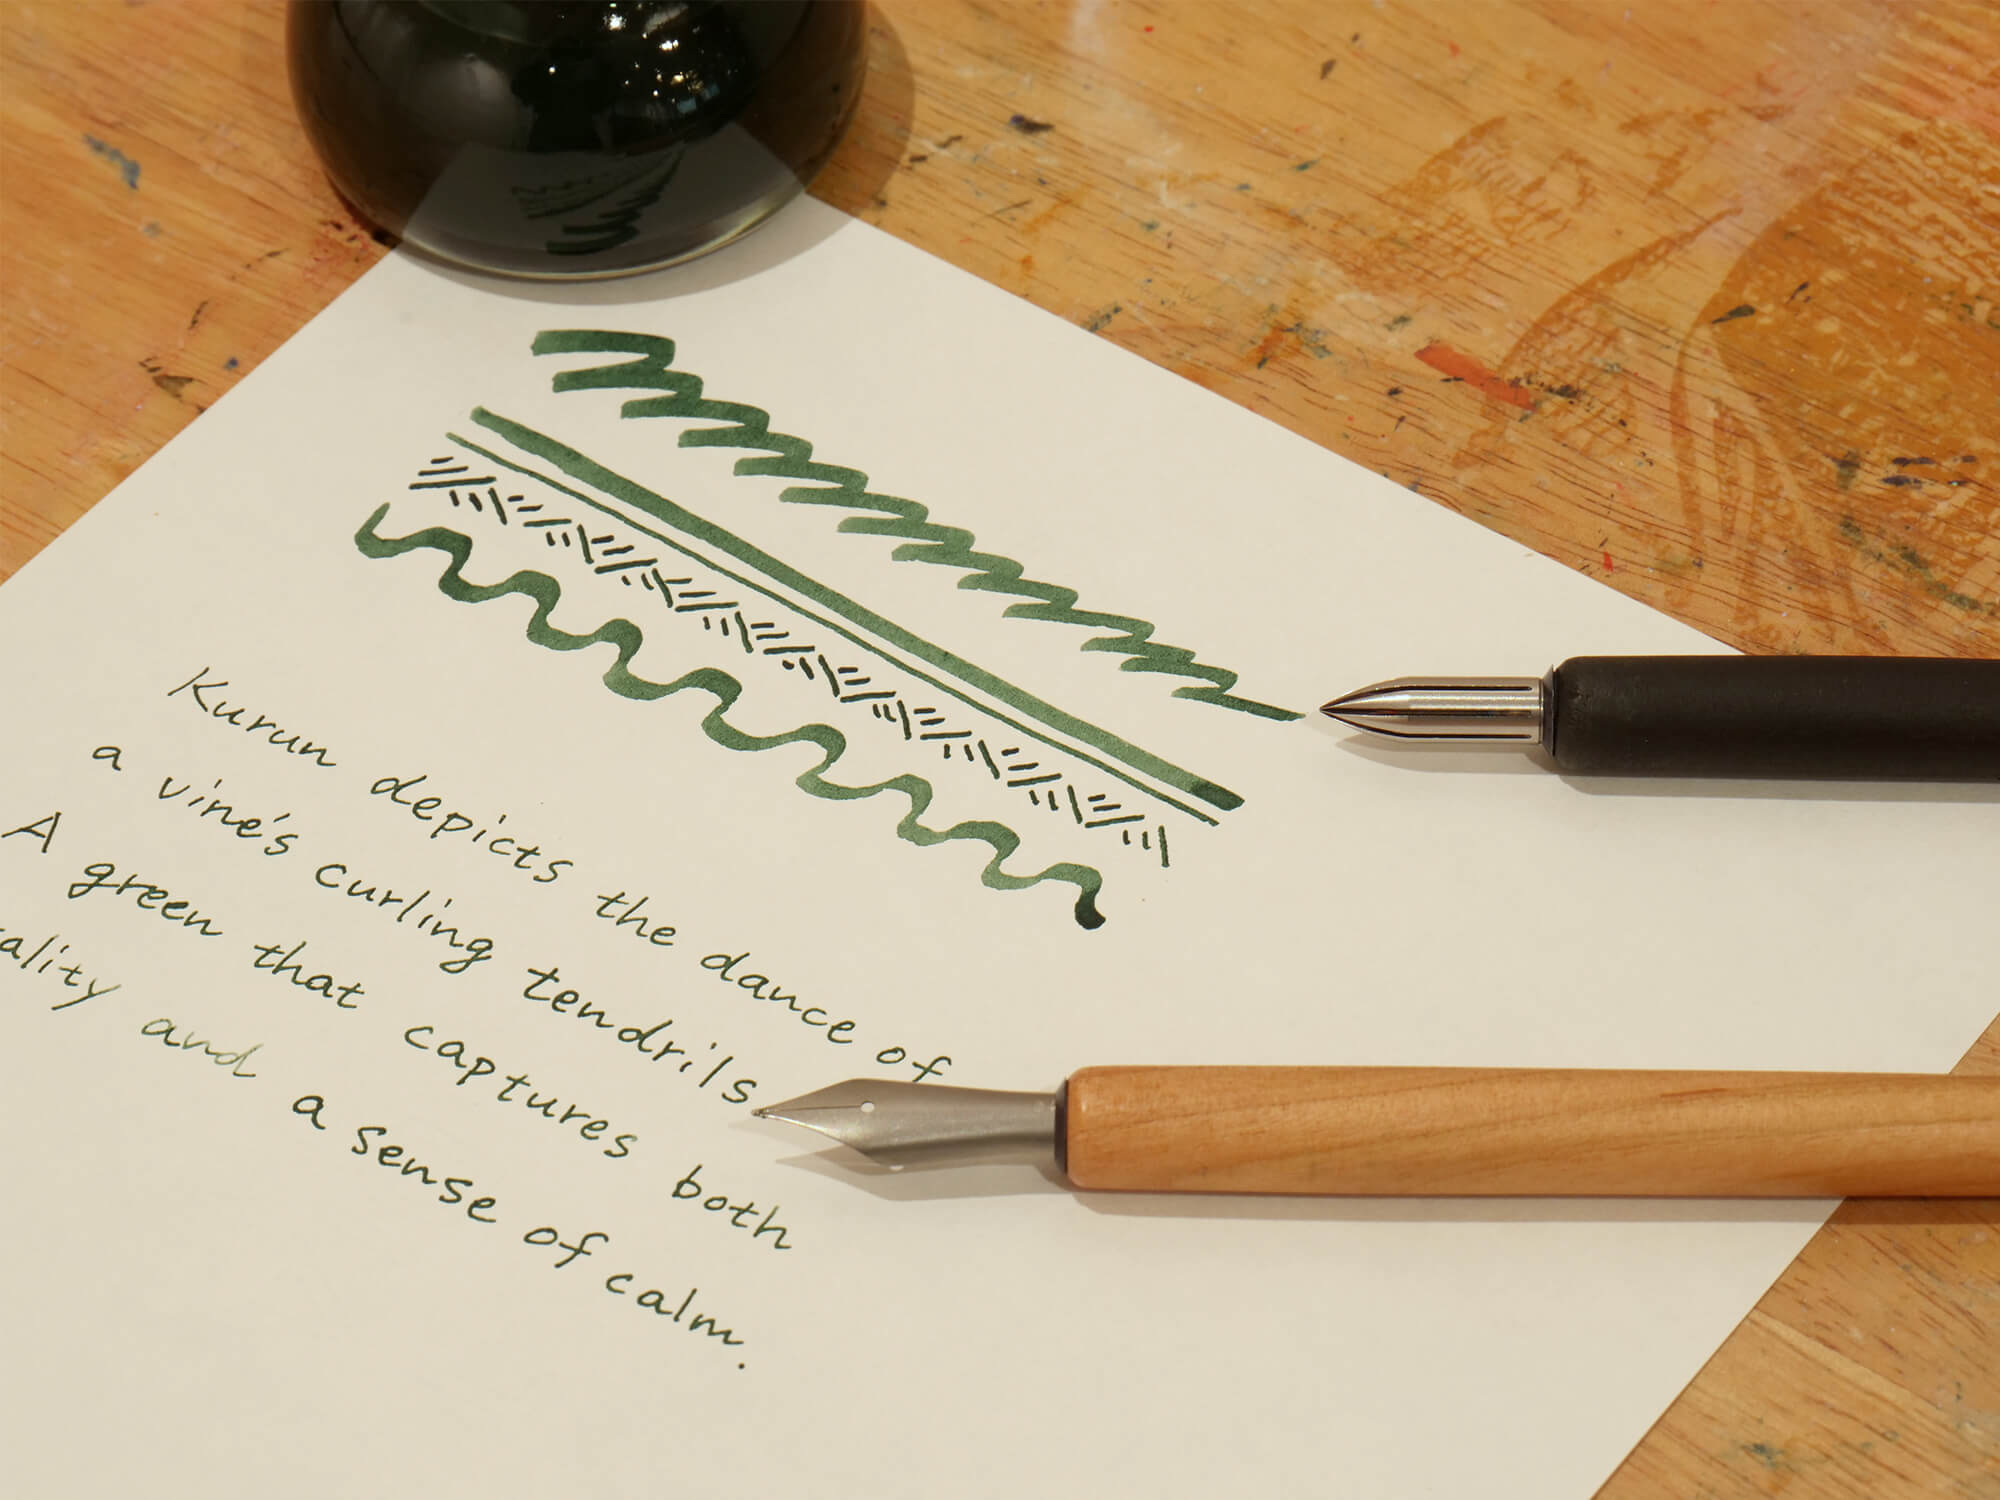 Kurun depicts the dance of
a vine's curling tendrils
A green that captures both
and a sense of calm.